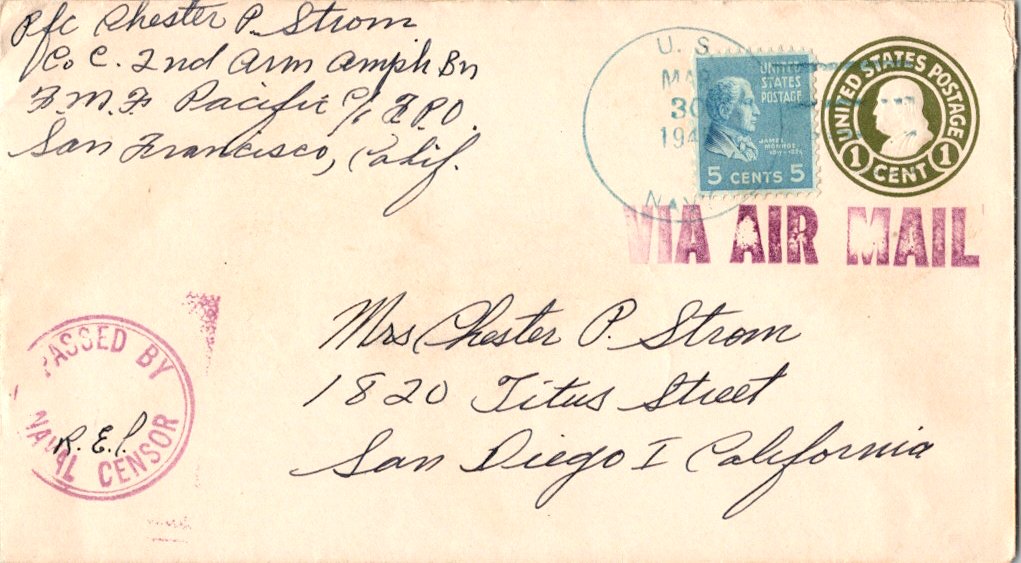 Pfc Chester P. Strom
Co C. 2nd Arm Amph Bn
F.M.F. Pacific c/o F.P.O.
San Francisco, Calif.
U.S.
MAR
30
194
NAVY
UNITED
STATES
POSTAGE
JAMES
MONROE
5 CENTS 5
UNITED STATES POSTAGE
1 CENT 1
VIA AIR MAIL
Mrs Chester P. Strom
1820 Titus Street
San Diego I California
PASSED BY
R.E.P.
NAVAL CENSOR